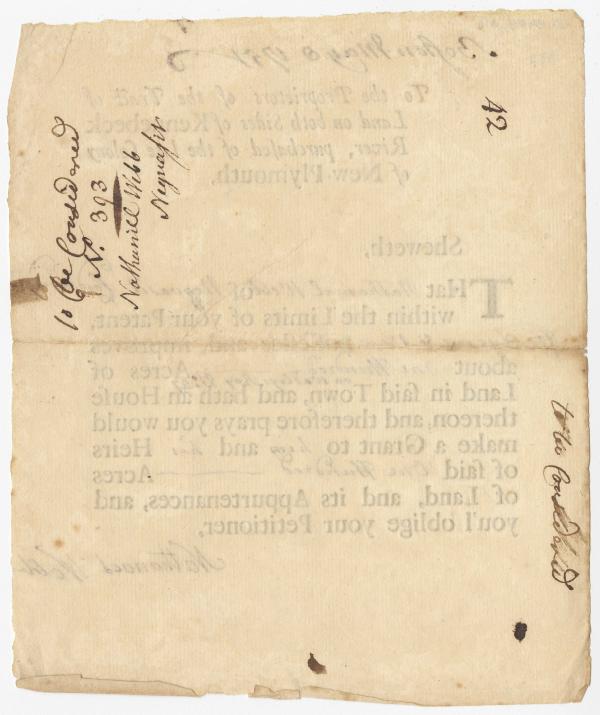 to be Considered
No. 393
Nathaniell Webb
Neguasset
42
to be Considered
Boston May 8 1751
To the Proprietors of the Tract of
Land on both Sides of Kennebeck
River, purchased of the late Colony
of New-Plymouth.
Sheweth,
THat Nathaniel Webb of
within the Limits of your Patent,
and improves
about One Hundred Acres of
Land in said Town, and hath an House
thereon, and therefore prays you would
make a Grant to him and his Heirs
of said One Hundred Acres
of Land, and its Appurtenances, and
you'l oblige your Petitioner,
Nathaniel Webb